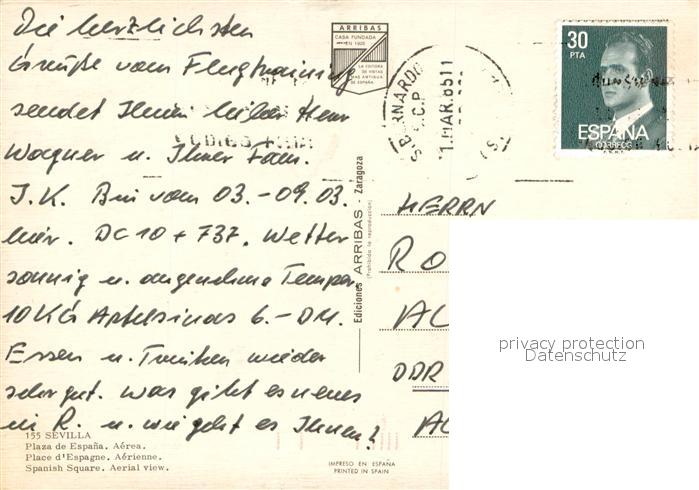 Die herzlichsten
Grüße vom Flugtraining
sendet Ihnen lieber Herr
Wagner u. Ihrer Fam.
J.K. Bin vom 03.-09.03.
hier. DC 10 + 737. Wetter
sonnig u. angenehme Temper.
10KG Apfelsinas 6.- DM.
Essen u. Trinken wieder
sehr gut. Was gibt es neues
in R. u. wie geht es Ihnen?
155 SEVILLA
Plaza de España. Aérea.
Place d'Espagne. Aérienne.
Spanish Square. Aerial view.
ARRIBAS
CASA FUNDADA
EN 1905
LA EDITORA
DE VISTAS
MAS ANTIGUA
DE ESPAÑA
Ediciones ARRIBAS - Zaragoza
(Prohibida la reproducción)
IMPRESO EN ESPAÑA
PRINTED IN SPAIN
S.BERNARDO
C.P.
MAR.85
30
PTA
ESPAÑA
CORREOS
HERRN
RO
DDR
privacy protection
Datenschutz